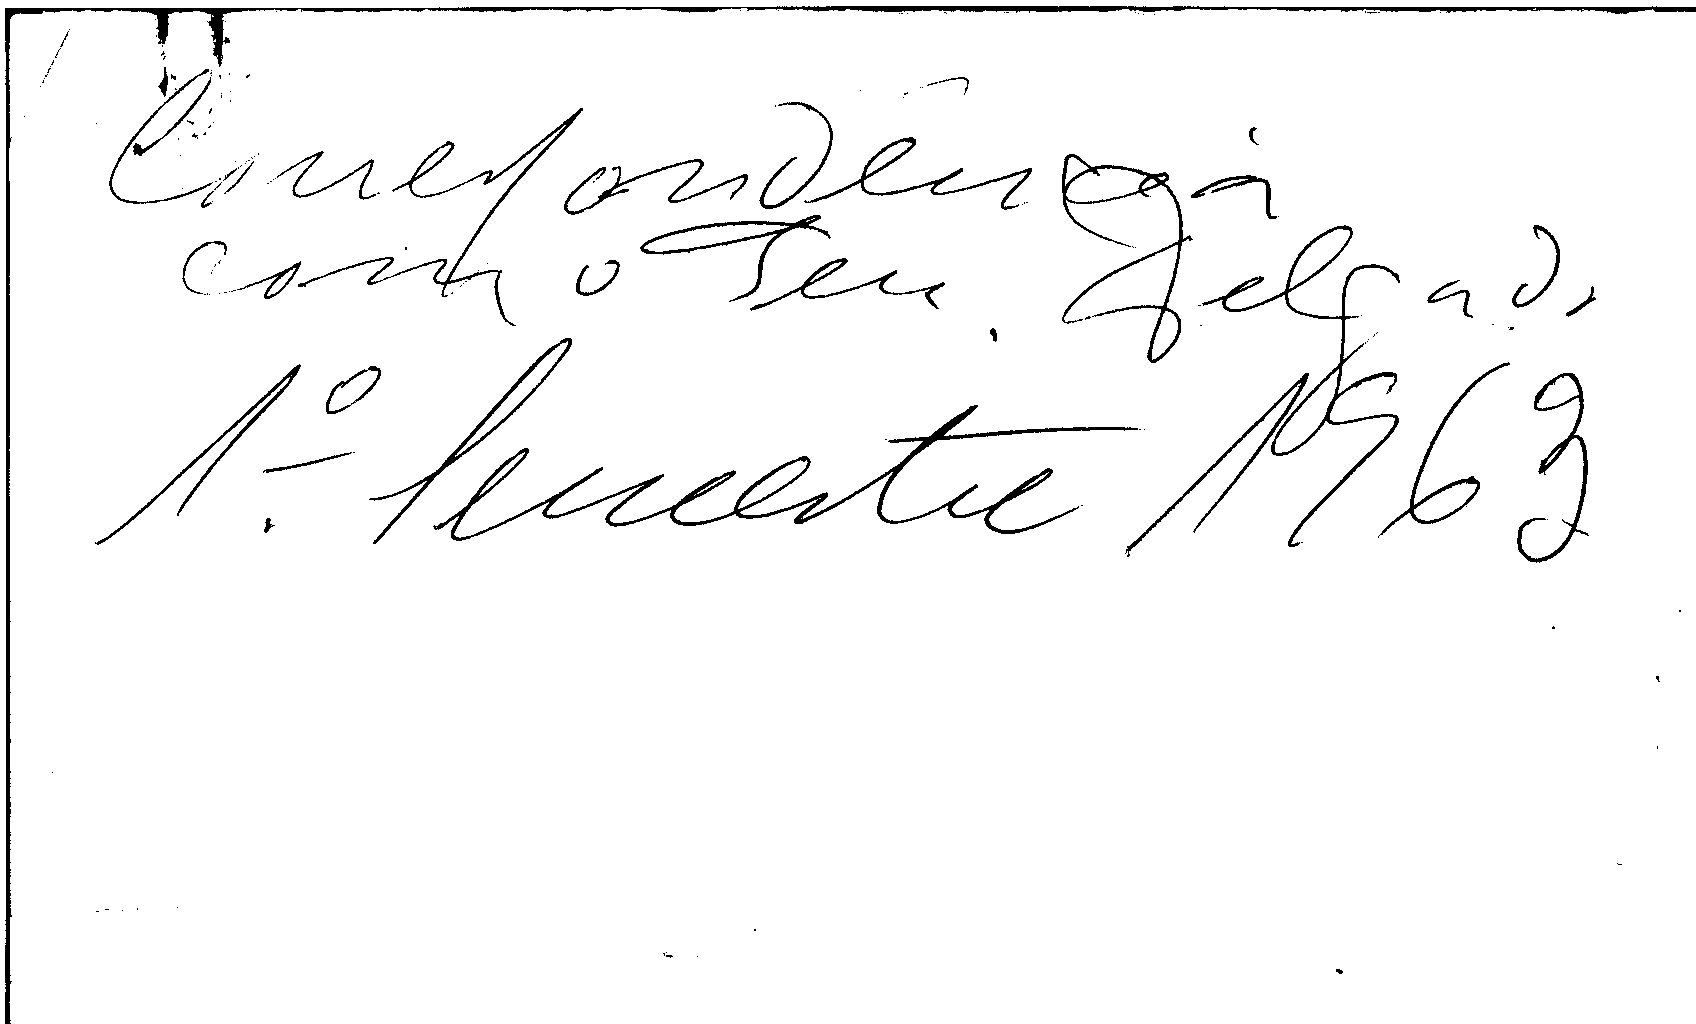 Correspondência
com o Ten. Delgado
1.º Semestre 1963